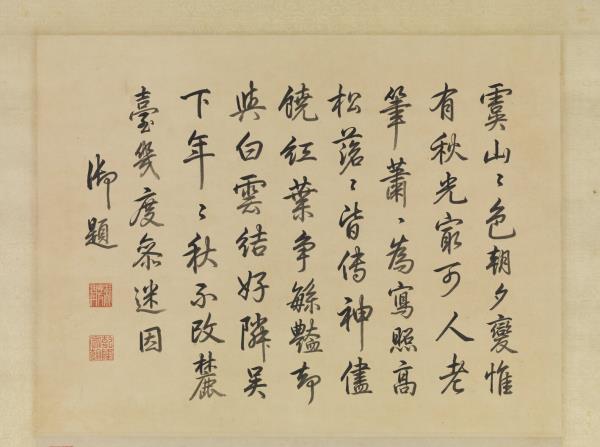 虞山〻色朝夕變惟
有秋光最可人老
筆蕭〻為寫照高
松落〻皆傳神儘
饒紅葉爭緐豔却
與白雲結好隣吴
下年〻秋不改麓
臺幾度參迷因
御題